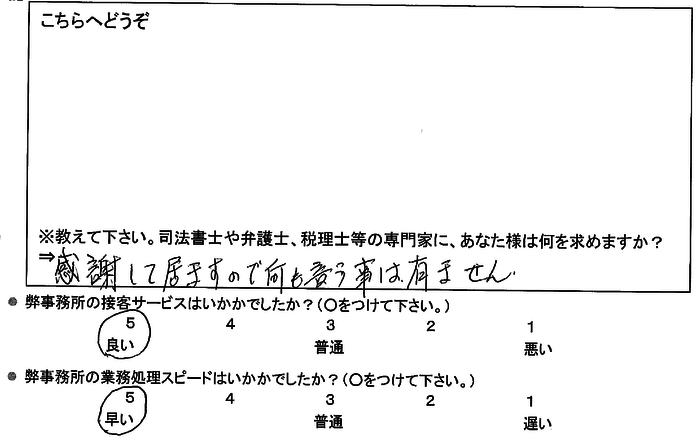 こちらへどうぞ
※教えて下さい。司法書士や弁護士、税理士等の専門家に、あなた様は何を求めますか？
⇒感謝して居ますので何も言う事は有ません.
● 弊事務所の接客サービスはいかかでしたか？(○をつけて下さい。)
5 4 3 2 1
良い 普通 悪い
● 弊事務所の業務処理スピードはいかかでしたか？(○をつけて下さい。)
5 4 3 2 1
早い 普通 遅い